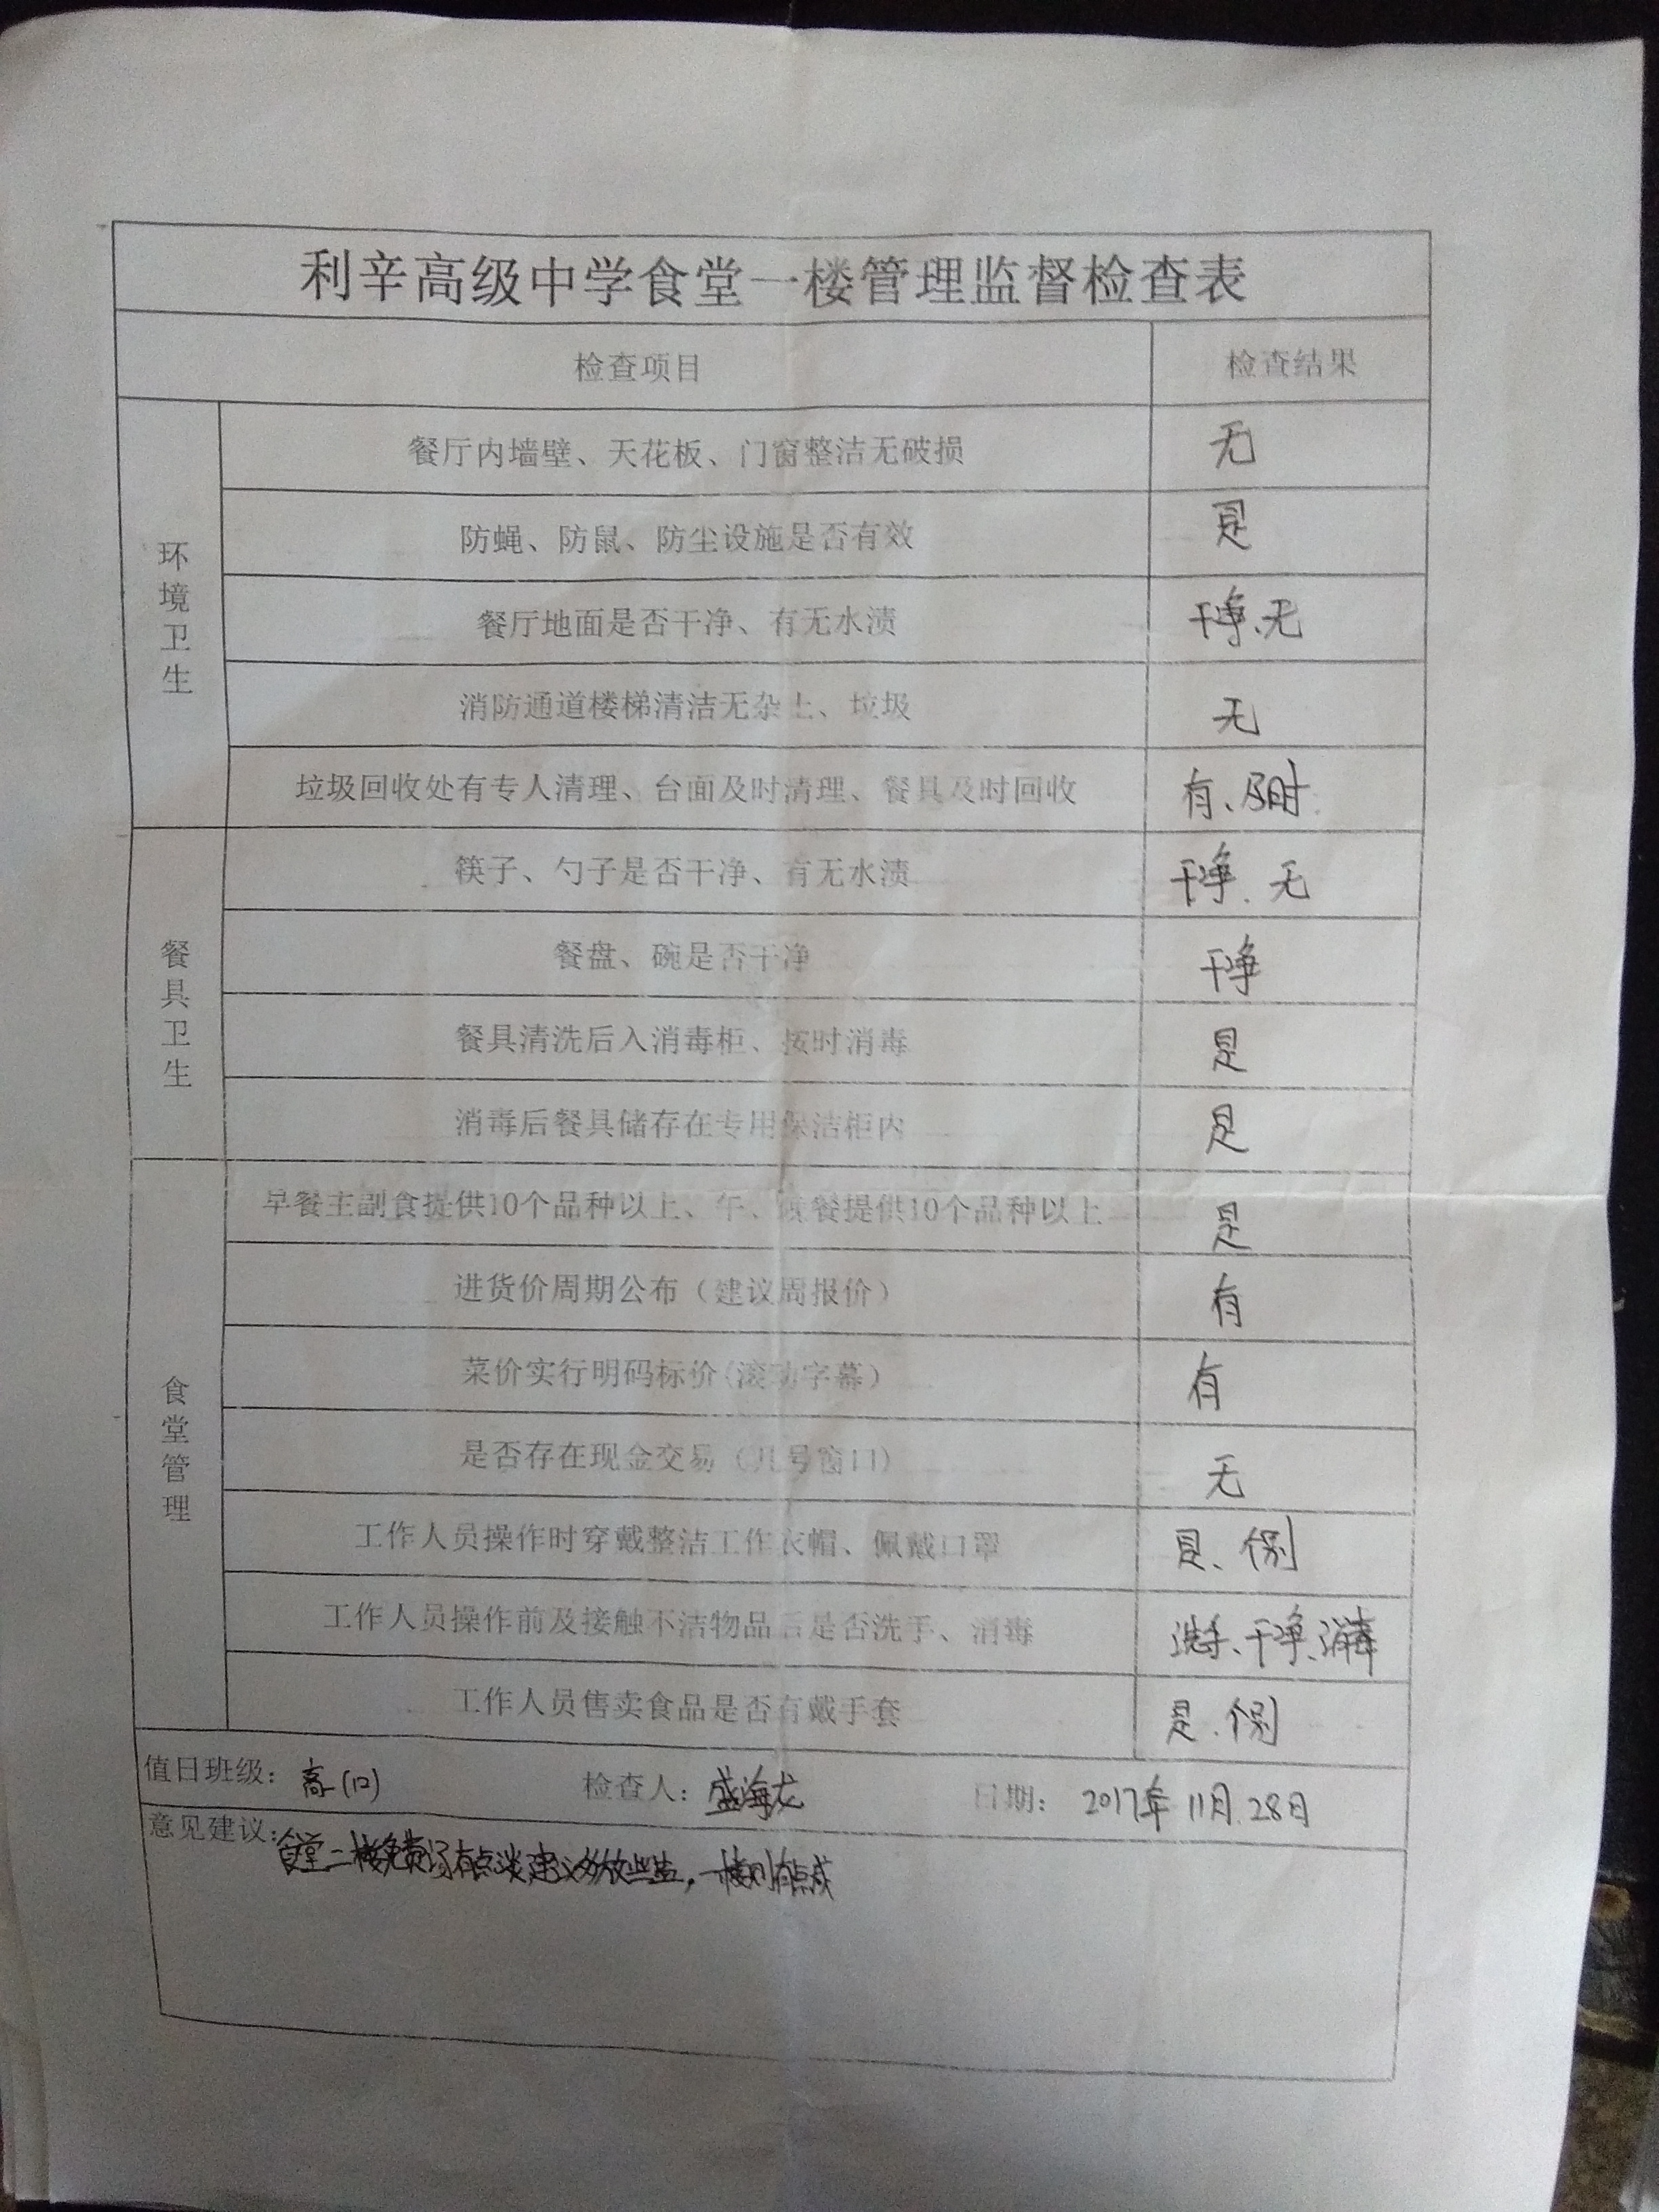 利辛高级中学食堂一楼管理监督检查表
检查项目 检查结果
环境卫生
餐厅内墙壁、天花板、门窗整洁无破损 无
防蝇、防鼠、防尘设施是否有效 是
餐厅地面是否干净、有无水渍 干净、无
消防通道楼梯清洁无杂土、垃圾 无
垃圾回收处有专人清理、台面及时清理、餐具及时回收 有、及时
餐具卫生
筷子、勺子是否干净、有无水渍 干净、无
餐盘、碗是否干净 干净
餐具清洗后入消毒柜、按时消毒 是
消毒后餐具储存在专用保洁柜内 是
食堂管理
早餐主副食提供10个品种以上、午、晚餐提供10个品种以上 是
进货价周期公布（建议周报价） 有
菜价实行明码标价(滚动字幕） 有
是否存在现金交易（几号窗口） 无
工作人员操作时穿戴整洁工作衣帽、佩戴口罩 是、个别
工作人员操作前及接触不洁物品后是否洗手、消毒 洗手、干净、消毒
工作人员售卖食品是否有戴手套 是、个别
值日班级： (12) 检查人：盛海龙 日期： 2017年11月28日
意见建议：食堂二楼免费汤有点淡建议多放些盐，一楼则有点咸